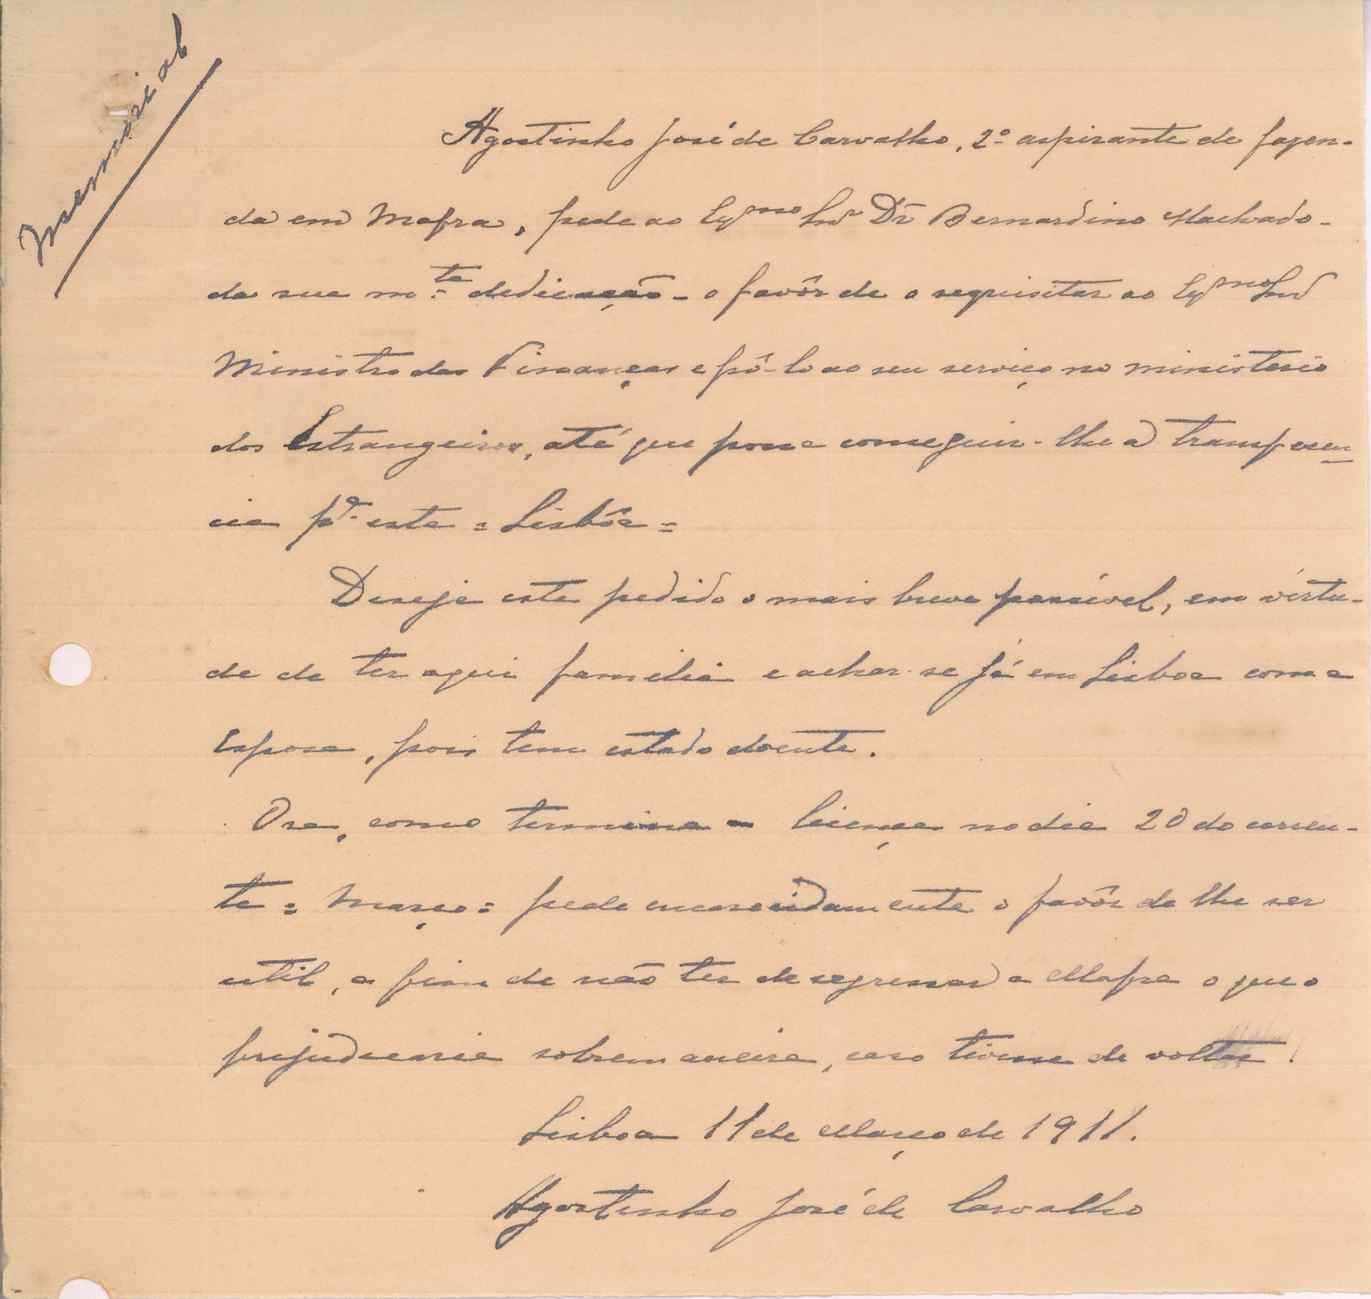 Memorial
Agostinho José de Carvalho, 2º aspirante de fazen-
da em Mafra, pede ao Exmo Snr Dr Bernardino Machado -
da sua m.te dedicação - o favôr de o requisitar ao Exmo Snr
Ministro das Finanças e pô-lo ao seu serviço no ministerio
dos Estrangeiros, até que possa conseguir-lhe a transferen-
cia pª esta = Lisbôa =
Deseja este pedido o mais breve possível, em vírtu-
de de ter aqui familia e achar-se já em Lisboa com a
Esposa, pois tem estado doente.
Ora, como termina a licença no dia 20 do corren-
te = Março = pede encarecidamente o favôr de lhe ser
util, a fim de não ter de regressar a Mafra o que o
prejudicaria sobremaneira, caso tivesse de voltar.
Lisboa 11 de Março de 1911.
Agostinho José de Carvalho